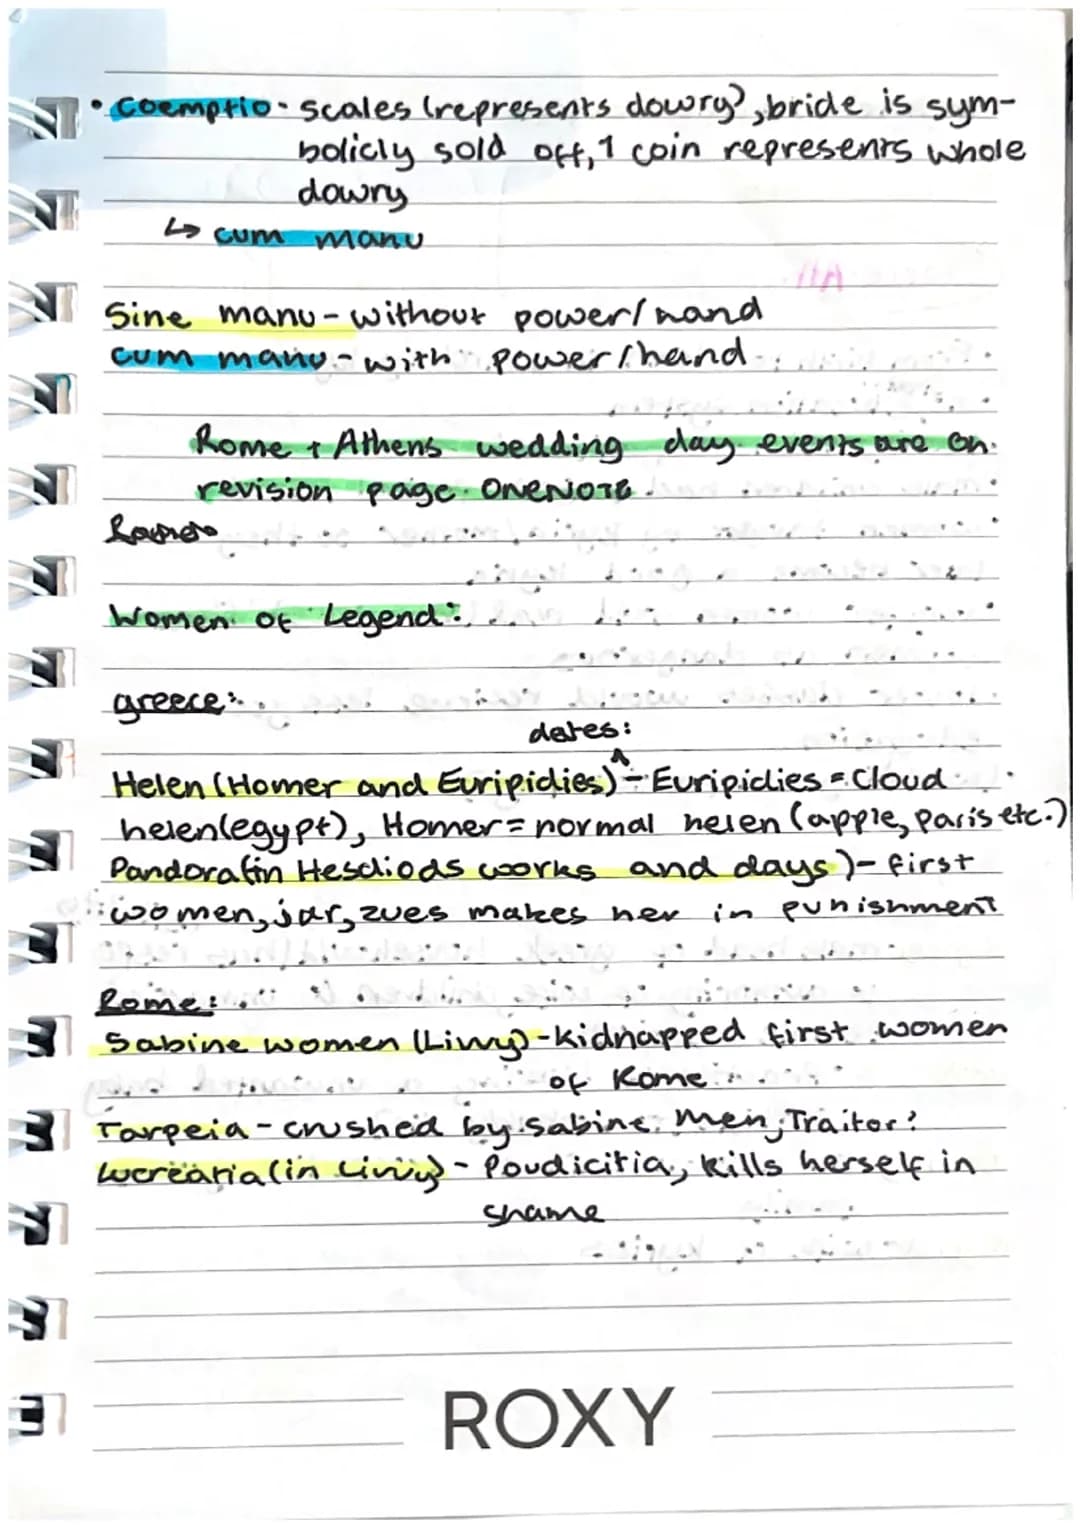 • Coemptio - scales (represents dowry), bride is sym-
bolicly sold off, 1 coin represents whole
dowry
↳ cum manu
Sine manu - without power/hand
cum manu - with power/hand
Rome + Athens wedding day events are on
revision page ONENOTE
Women of Legend:
greece:
dates:
Helen (Homer and Euripidies) - Euripidies = Cloud
helen (egypt), Homer = normal helen (apple, paris etc.)
Pandora (in Hesdiods works and days) - first
women, jar, zues makes her in punishment
Rome:
Sabine women (Livvy) - kidnapped first women
of Rome
Tarpeia - crushed by sabine men, Traitor?
Lucreatia (in Livvy) - Poudicitia, kills herself in
shame
ROXY